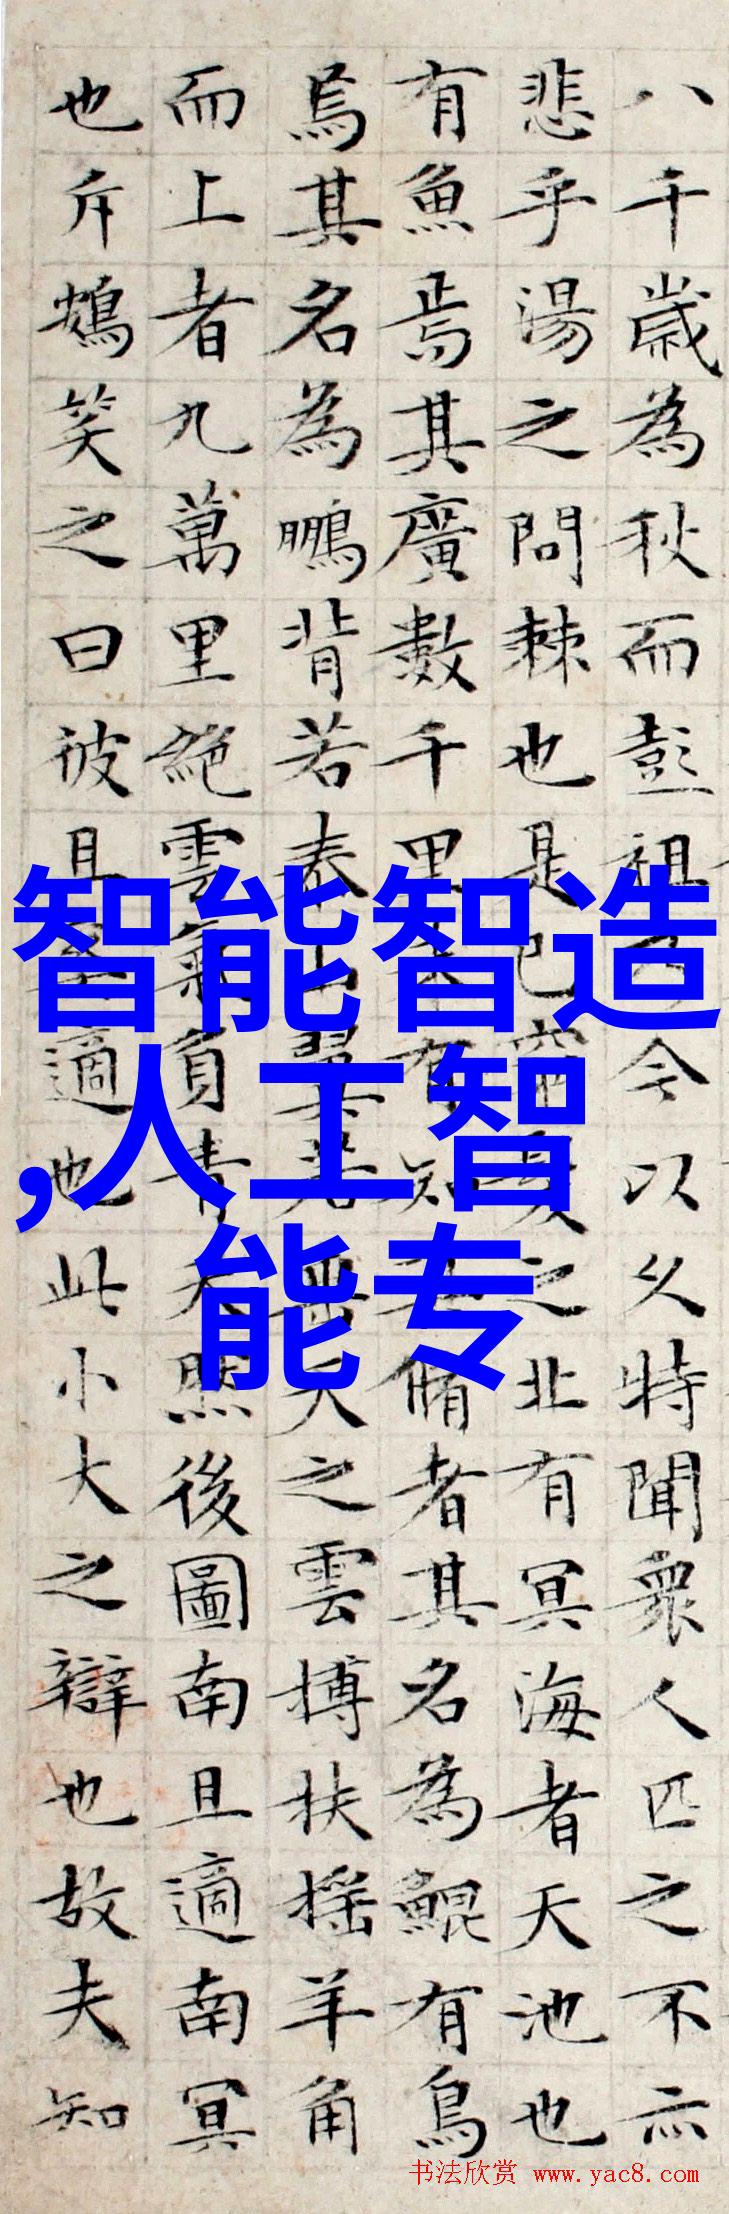 八千歲為秋而彭祖乃今以久特聞眾人匹之不亦
悲乎湯之問棘也是已窮髮之北有冥海者天池也
有魚焉其廣數千里未有知其脩者其名為鯤有鳥
焉其名為鵬背若泰山翼若垂天之雲搏扶搖羊角
而上者九萬里絕雲氣負青天然後圖南且適南冥
也斥鴳笑之曰彼且奚適也此小大之辯也故夫知
智能智造
,人工智
能专
书法欣赏 www.yac8.com